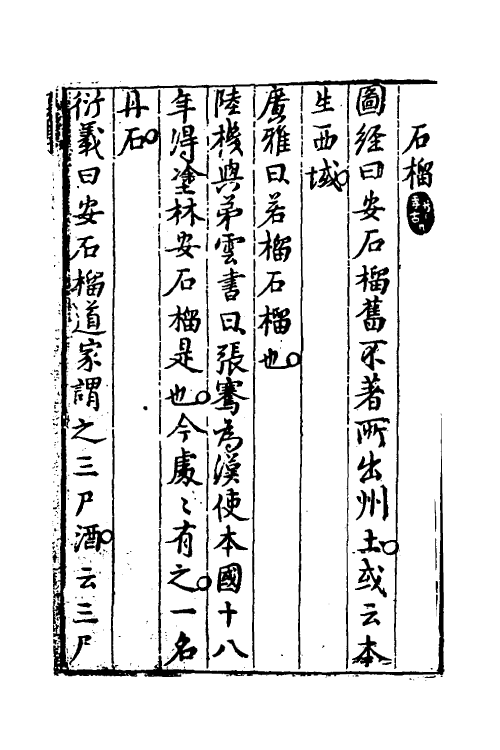 石榴
圖經曰安石榴舊不著所出州土或云本
生西域
廣雅曰若榴石榴也
陸機與弟雲書曰張騫為漢使本國十八
年得塗林安石榴是也今處〻有之一名
丹石
衍義曰安石榴道家謂之三尸酒云三尸